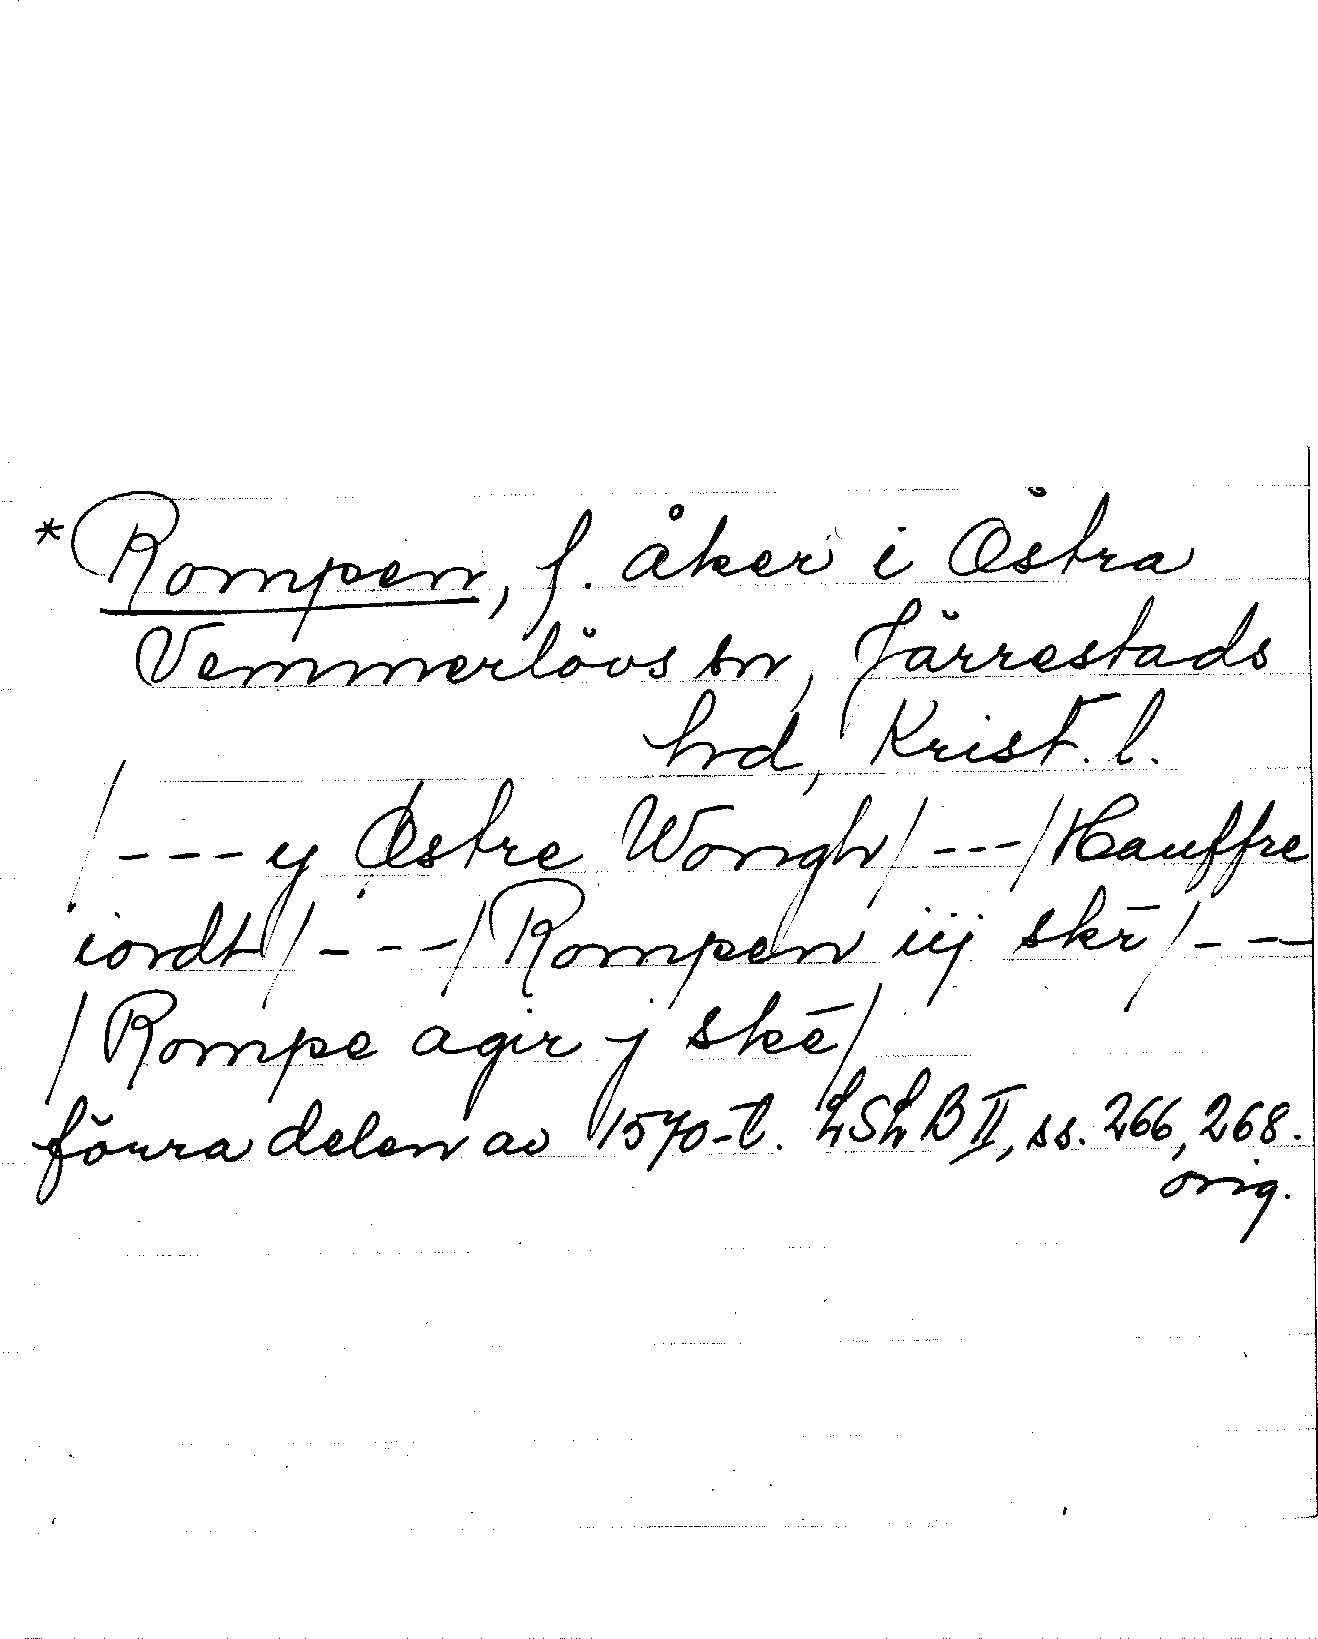 *Rompen, f. åker i Östra
Vemmerlövs sn, Järrestads
hrd, Krist. l.
/---y Østre Wongh/---/Hauffre
iordt/---/Rompen iij skr̄/---
/Rompe agir j skē/
förra delen av 1570-t. LSLB II, ss. 266, 268.
orig.